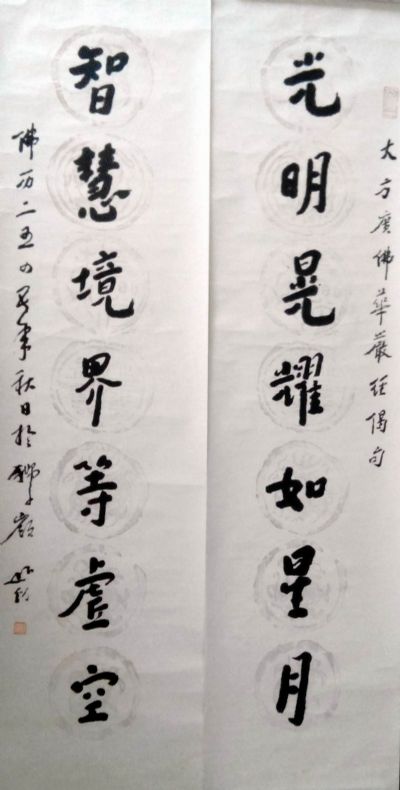 大方廣佛華嚴經偈句
光明晃耀如星月
智慧境界等虛空
佛历二五四年秋日於獅子嶺